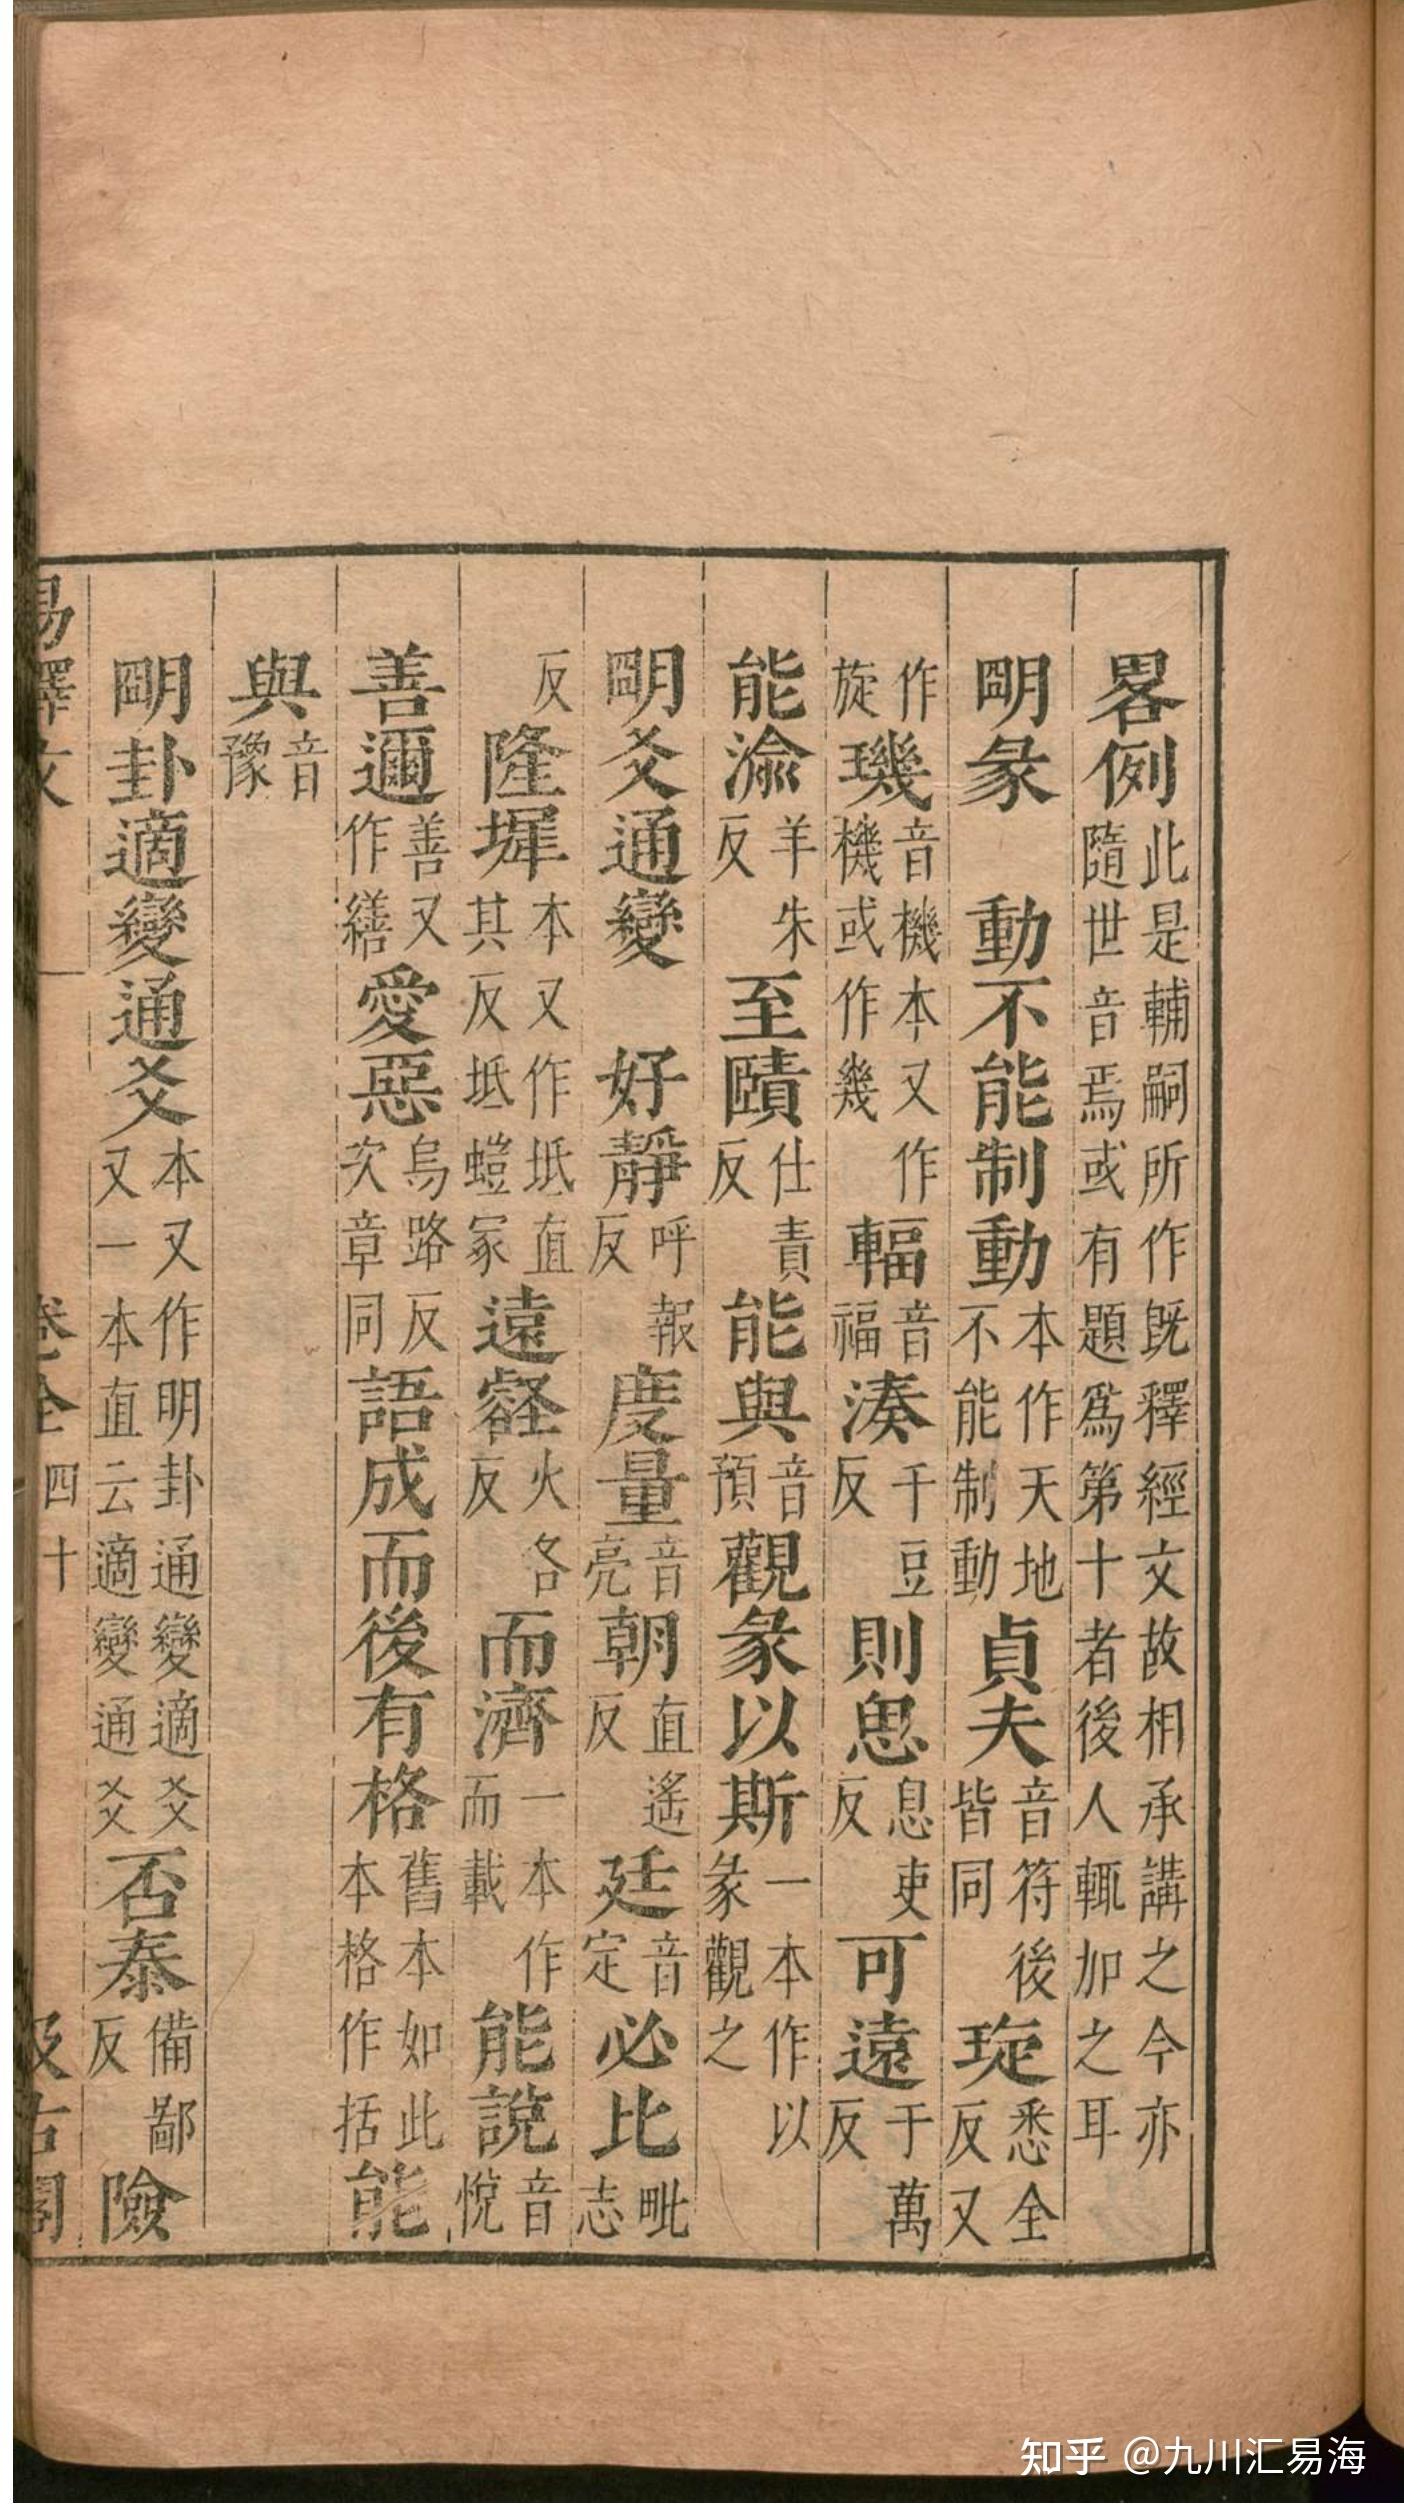 畧例此是輔嗣所作旣釋經文故相承講之今亦隨世音焉或有題爲第十者後人輒加之耳
明彖 動不能制動本作天地不能制動貞夫音符後皆同琁悉全反又
作旋璣音機本又作機或作幾輻音福湊千豆反則思息吏反可遠于萬反
能渝羊朱反至賾仕責反能與音預觀彖以斯一本作以彖觀之
明爻通變 好靜呼報反度量音亮朝直遙反廷音定必比毗志
反隆墀本又作坻直其反坻螘冢遠壑火各反而濟一本作而載能說音悅
善邇善又作繕愛惡烏路反次章同語成而後有格舊本如此本格作括能
與音豫
明卦適變通爻本又作明卦通變適爻又一本直云適變通爻否泰備鄙反險
易釋文 卷全 四十 汲古閣
知乎 @九川汇易海